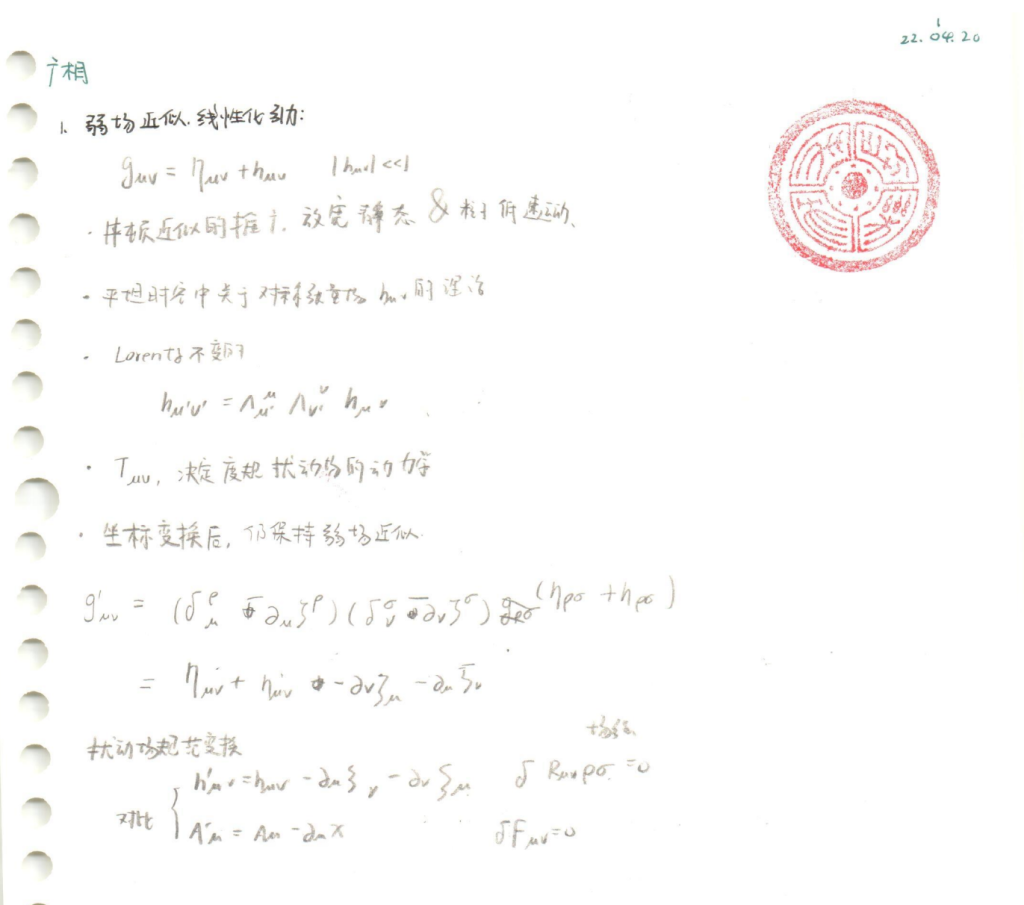 22.04.20
广相
1. 弱场近似.线性化引力:
gμν = ημν + hμν |hμν| <<1
· 牛顿近似的推广. 放宽静态 & 粒子低速运动、
· 平坦时空中关于对称张量场 hμν 的理论
· Lorentz不变的
hμ'ν' = Λμ'^μ Λν'^ν hμν
· Tμν, 决定度规扰动场的动力学
· 坐标变换后, 仍保持弱场近似.
g'μν = (δμ^ρ - ∂μξ^ρ)(δν^σ - ∂νξ^σ) (ηρσ + hρσ)
= ημν + hμν - ∂νξμ - ∂μξν
扰动场规范变换
h'μν = hμν - ∂μξν - ∂νξμ δRμνρσ = 0
对比
A'μ = Aμ - ∂μχ δFμν = 0